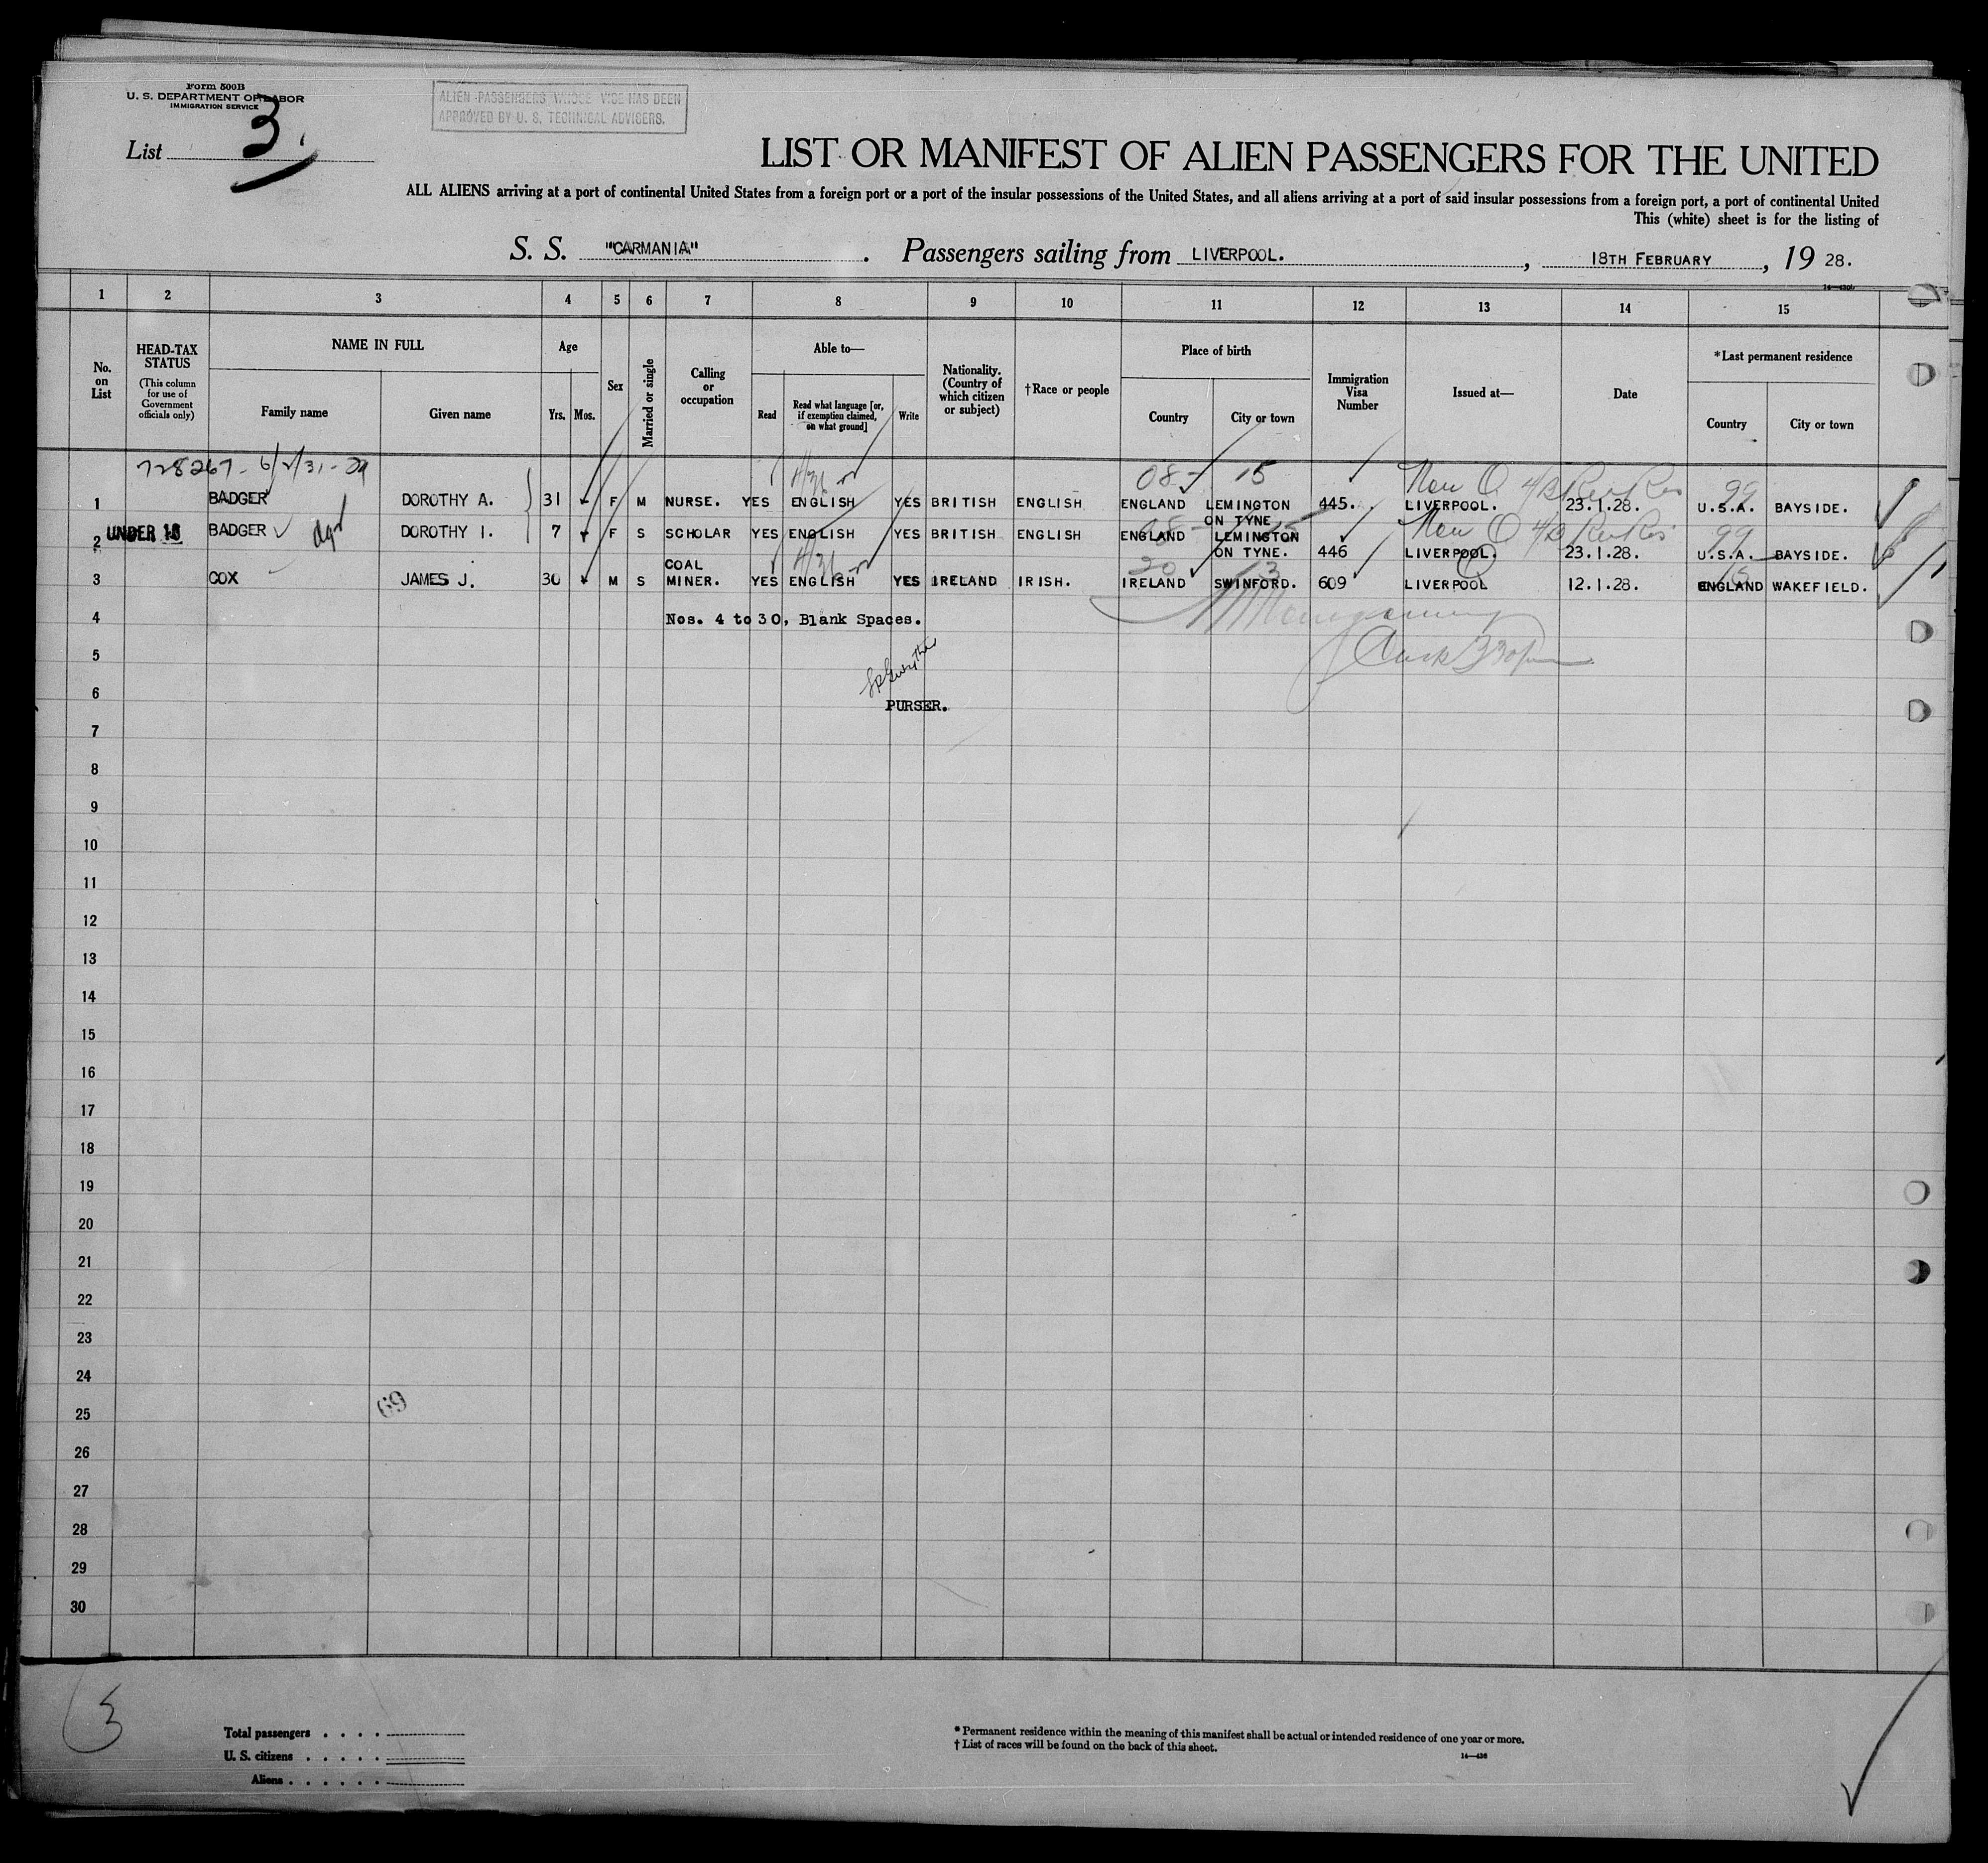 Form 500B
U. S. DEPARTMENT OF LABOR
IMMIGRATION SERVICE
ALIEN PASSENGERS WHOSE VISE HAS BEEN
APPROVED BY U. S. TECHNICAL ADVISERS.
List 3.
LIST OR MANIFEST OF ALIEN PASSENGERS FOR THE UNITED
ALL ALIENS arriving at a port of continental United States from a foreign port or a port of the insular possessions of the United States, and all aliens arriving at a port of said insular possessions from a foreign port, a port of continental United
This (white) sheet is for the listing of
S. S. "CARMANIA". Passengers sailing from LIVERPOOL., 18TH FEBRUARY, 19 28.
1 2 3 4 5 6 7 8 9 10 11 12 13 14 15
No. on List
HEAD-TAX STATUS
(This column for use of Government officials only)
NAME IN FULL
Family name Given name
Age
Yrs. Mos.
Sex
Married or single
Calling or occupation
Able to—
Read
Read what language [or, if exemption claimed, on what ground]
Write
Nationality. (Country of which citizen or subject)
†Race or people
Place of birth
Country City or town
Immigration Visa Number
Issued at—
Date
*Last permanent residence
Country City or town
08- 15
1 BADGER DOROTHY A. 31 F M NURSE. YES ENGLISH YES BRITISH ENGLISH ENGLAND LEMINGTON ON TYNE 445. LIVERPOOL. 23.1.28. U.S.A. BAYSIDE.
2 UNDER 16 BADGER DOROTHY I. 7 F S SCHOLAR YES ENGLISH YES BRITISH ENGLISH ENGLAND LEMINGTON ON TYNE. 446 LIVERPOOL. 23.1.28. U.S.A. BAYSIDE.
3 COX JAMES J. 30 M S COAL MINER. YES ENGLISH YES IRELAND IRISH. IRELAND SWINFORD. 609 LIVERPOOL 12.1.28. ENGLAND WAKEFIELD.
4 Nos. 4 to 30, Blank Spaces.
5
6
PURSER.
7
8
9
10
11
12
13
14
15
16
17
18
19
20
21
22
23
24
69
25
26
27
28
29
30
3
Total passengers . . . .
U. S. citizens . . . . .
Aliens . . . . . .
* Permanent residence within the meaning of this manifest shall be actual or intended residence of one year or more.
† List of races will be found on the back of this sheet.